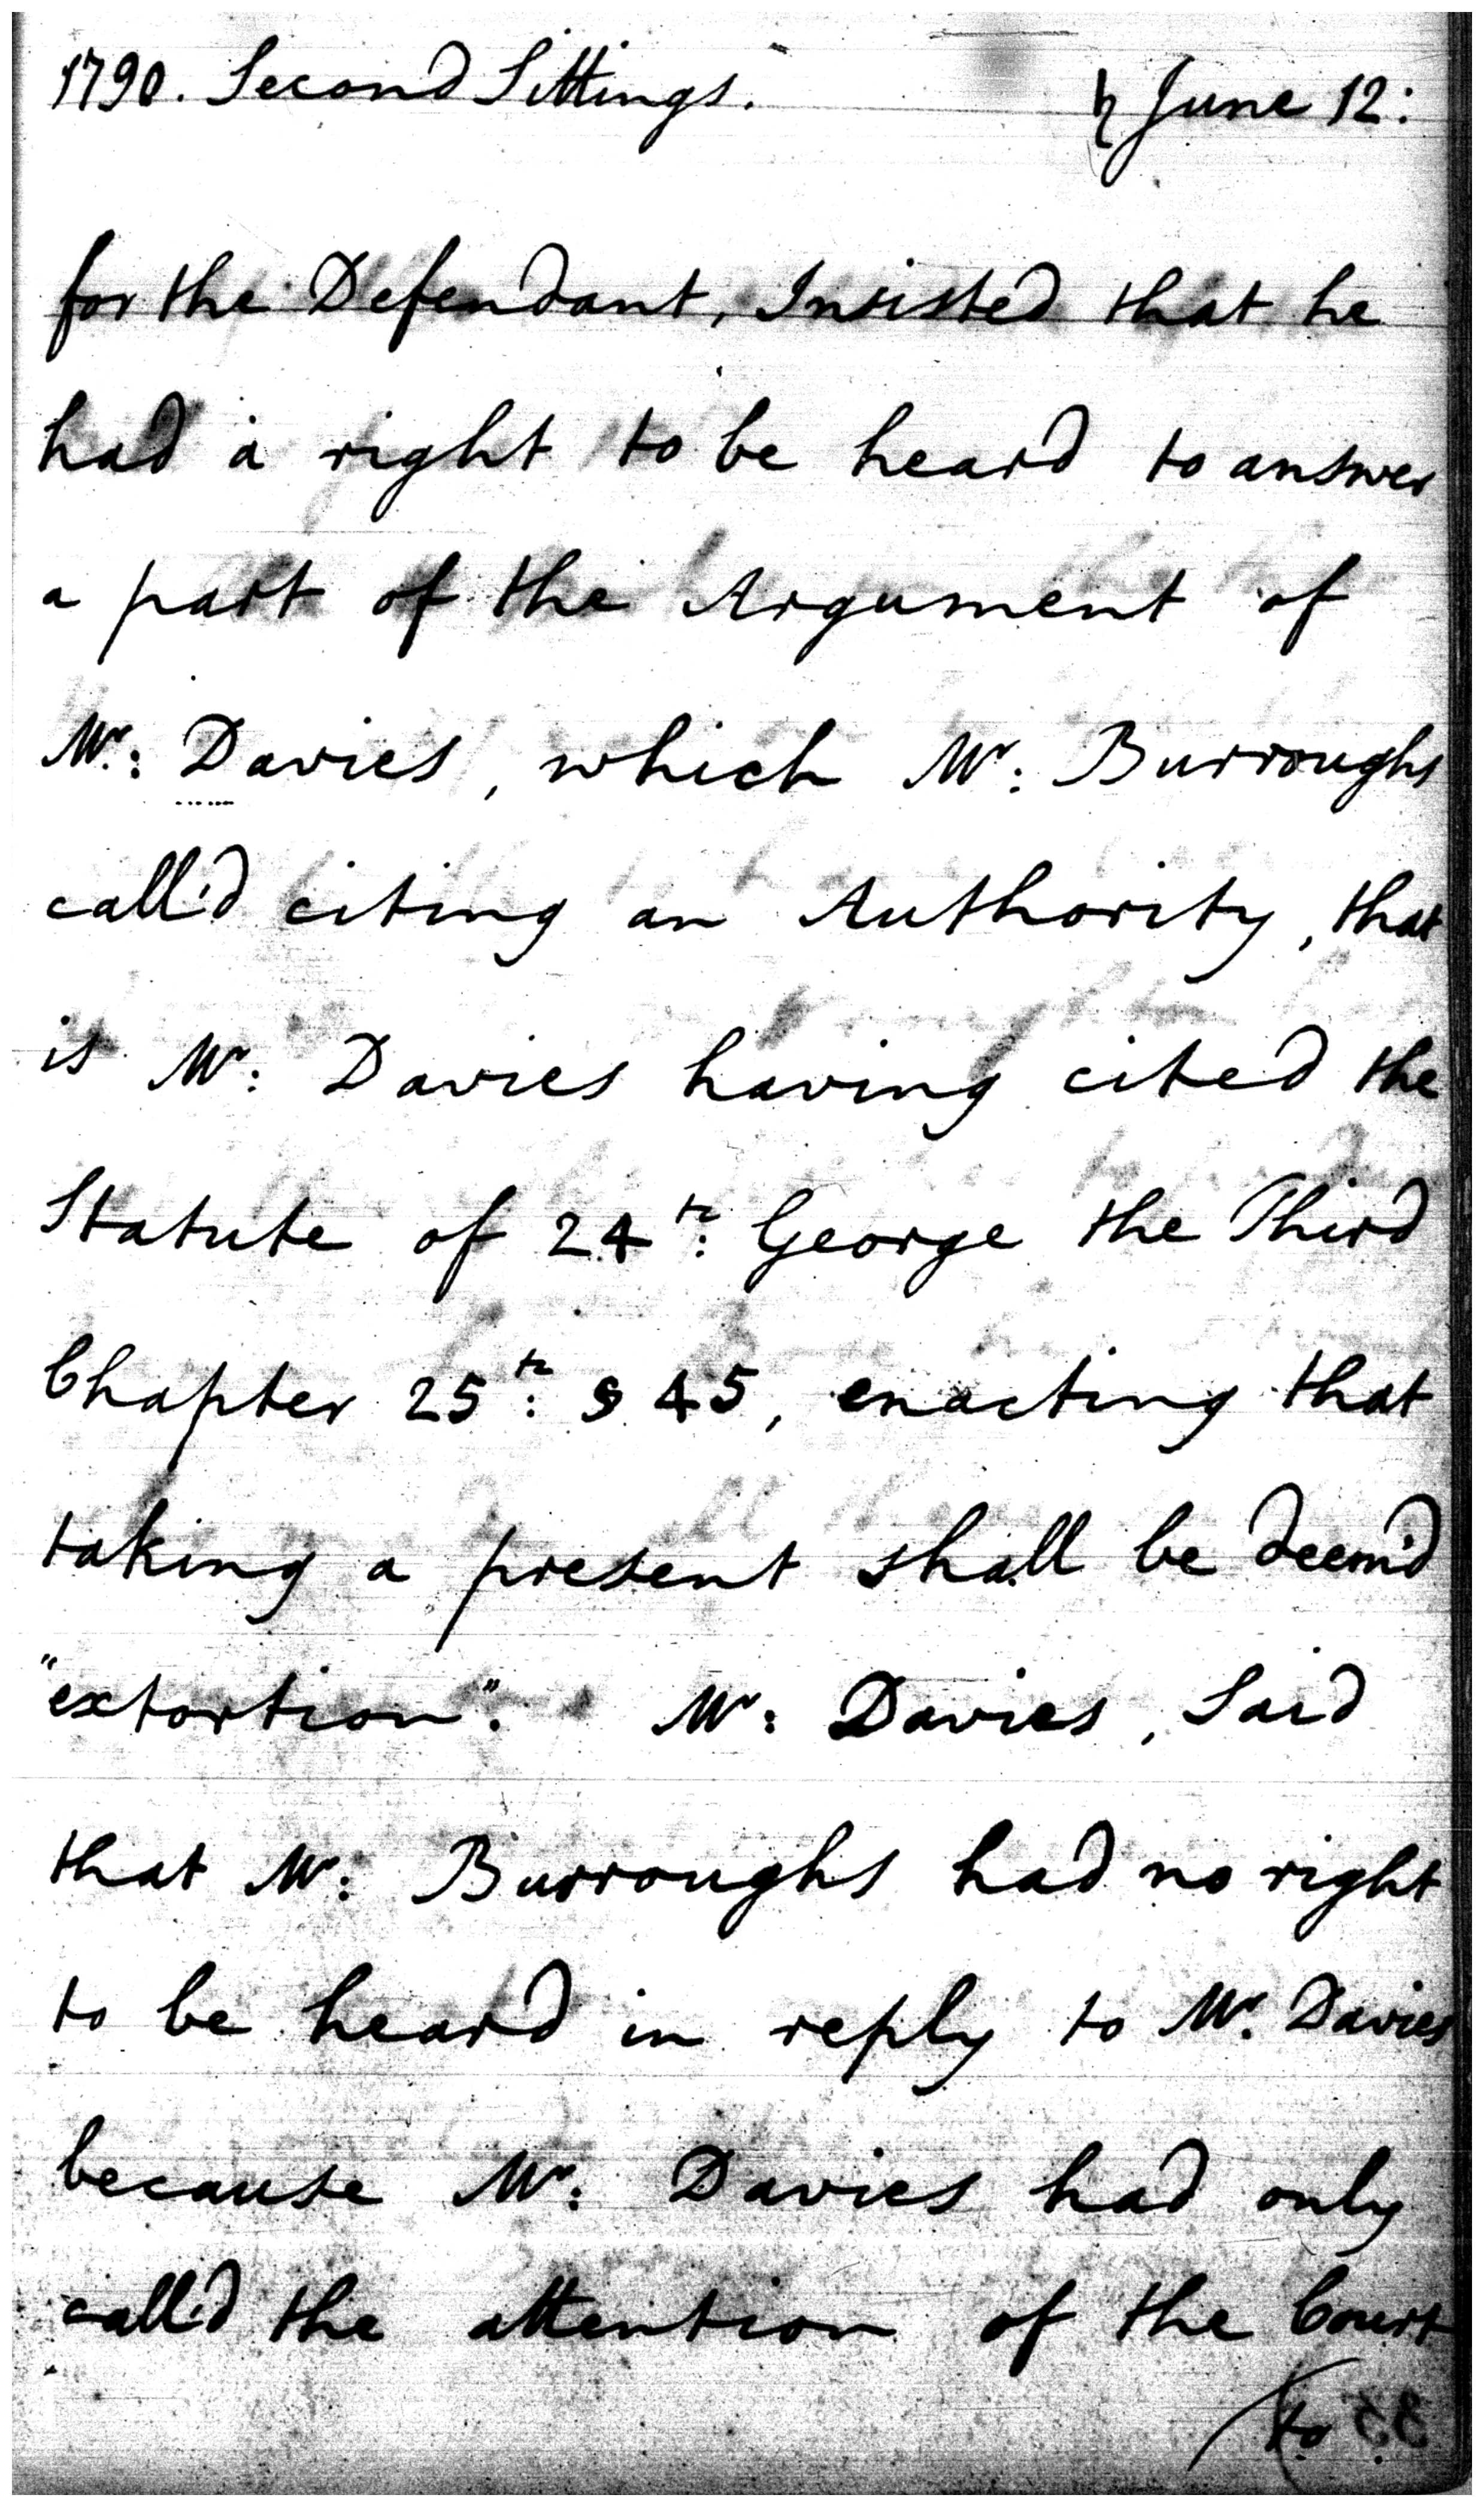 1790. Second Sittings. ♄ June 12:
for the Defendant, Insisted that he
had a right to be heard to answer
a part of the Argument of
Mr: Davies, which Mr: Burroughs
call'd citing an Authority, that
is Mr: Davies having cited the
Statute of 24th: George the Third
Chapter 25th: S 45, enacting that
taking a present shall be deem'd
"extortion". Mr: Davies, Said
that Mr: Burroughs had no right
to be heard in reply to Mr. Davies
because Mr: Davies had only
call'd the attention of the Court
to